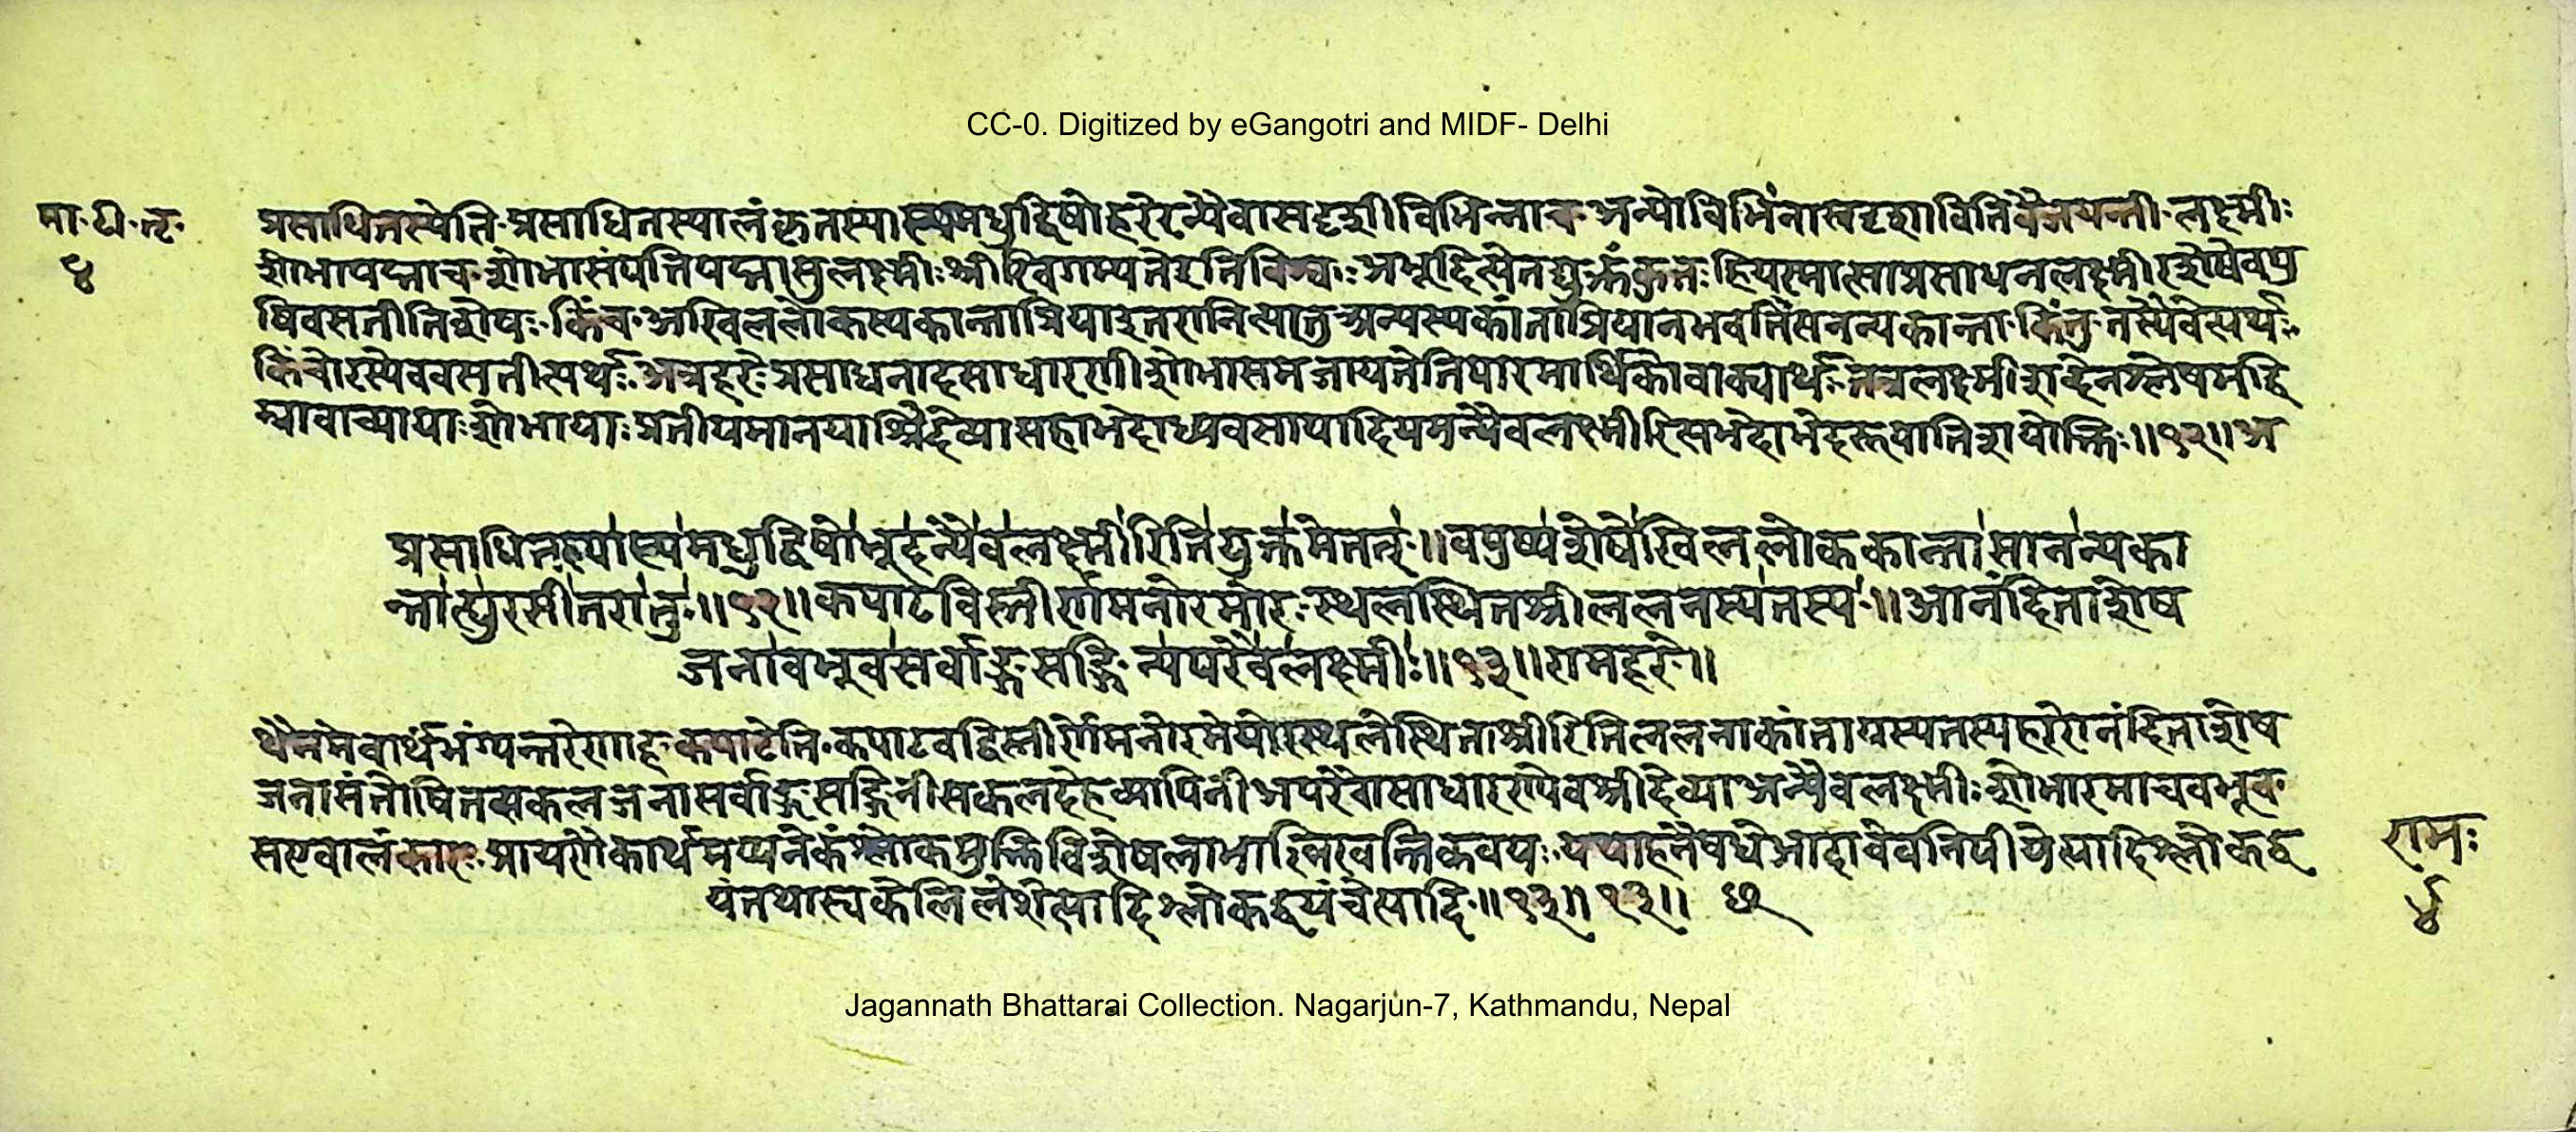 CC-0. Digitized by eGangotri and MIDF- Delhi
मा. टी. तृ. प्रसाधितस्येति प्रसाधितस्यालंकृतस्यास्यमधुद्विषोहरेरन्यैवासदृशीविभिन्नाच अन्योविभिंनासदृशावितिवैजयन्ती लक्ष्मीः
४ शोभापद्माच शोभासंपत्तिपद्मासुलक्ष्मीःश्रीरिवगम्यतेइतिविश्वः अभूदित्येतद्युक्तंकुतः हियस्मात्साप्रसाधनलक्ष्मीरशेषेवपु
षिवसतीतिशेषः किंच अखिललोकस्यकान्ताप्रियाइतरानित्यातुअन्यस्यकांताप्रियानभवतिंसनन्यकान्ता किंतु तस्यैवेत्यर्थः
किंचोरस्येववसतीत्यर्थः अत्रहरेःप्रसाधनादसाधारणीशोभासमजायतेतिपारमार्थिकोवाक्यार्थः तत्रलक्ष्मीशब्देनश्लेषमहि
म्नावाच्यायाःशोभायाःप्रतीयमानयाश्रीदेव्यासहाभेदाध्यवसायादियमन्यैवलक्ष्मीरित्यभेदाभेदरूपातिशयोक्तिः॥१२॥अ
प्रसाधितस्यास्यमधुद्विषोभूदन्यैवलक्ष्मीरितियुक्तमेतत्॥वपुष्यशेषेखिललोककान्तासानन्यका
न्ताह्युरसीतरातु॥१२॥कपाटविस्तीर्णमनोरमोरःस्थलस्थितश्रीललनस्यतस्य॥आनंदिताशेष
जनाबभूवसर्वाङ्गसङ्गिन्यपरैवलक्ष्मीः॥१३॥रामहरे॥
थैतमेवार्थंभंग्यन्तरेणाह कपाटेति कपाटवद्विस्तीर्णेमनोरमेयोरस्थलेस्थिताश्रीरितिललनाकांतायस्यतस्यहरेरानंदिताशेष
जनासंतोषितसकलजनासर्वाङ्गसङ्गिनीसकलदेहव्यापिनीअपरैवासाधारण्येवश्रीदेव्याअन्यैवलक्ष्मीःशोभारमाचबभूव
सएवालंकारः प्रायेणैकार्थमप्यनेकंश्लोकमुक्तिविशेषलाभाल्लिखन्तिकवयः यथाहनैषधेआदावेवनिपीयेत्यादिश्लोकद्व रामः
यंतथास्वकेलिलेशेत्यादिश्लोकद्वयंचेत्यादि॥१३॥१३॥ ४
Jagannath Bhattarai Collection. Nagarjun-7, Kathmandu, Nepal